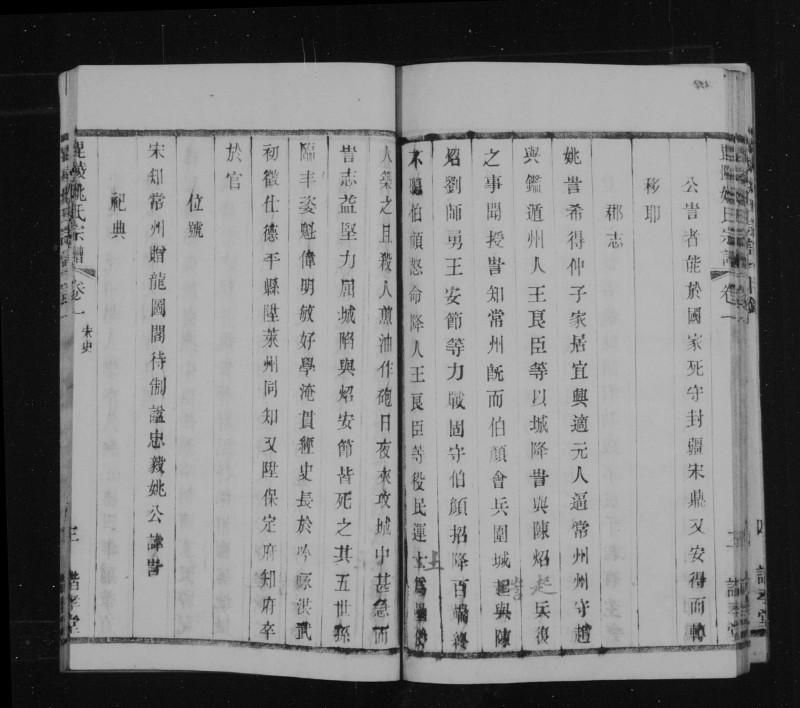 公訔者能於國家死守封疆宋鼎又安得而轉
移耶
郡志
姚訔希得仲子家居宜興適元人逼常州州守趙
與鑑遁州人王良臣等以城降訔與陳炤起兵復
之事聞授訔知常州旣而伯顏會兵圍城訔與陳
炤劉師勇王安節等力戰固守伯顏招降百端終
不聽伯顏怒命降人王良臣等役民運土爲壘倂
人築之且殺人煎油作砲日夜來攻城中甚急而
訔志益堅力屈城陷與炤安節皆死之其五世孫
臨丰姿魁偉明敏好學淹貫經史長於吟咏洪武
初徵仕德平縣陞萊州同知又陞保定府知府卒
於官
位號
宋知常州贈龍圖閣待制諡忠毅姚公諱訔
祀典
毘陵姚氏宗譜
卷一
宋史
三
諸孝堂